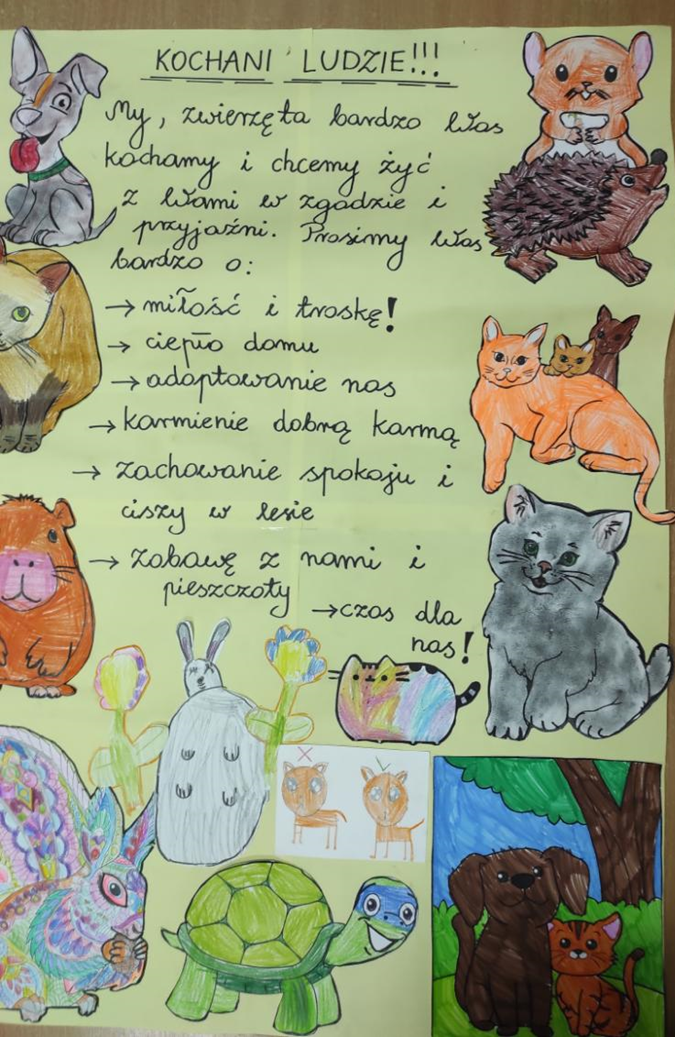 KOCHANI LUDZIE!!!
My, zwierzęta bardzo Was
kochamy i chcemy żyć
z Wami w zgodzie i
przyjaźni. Prosimy Was
bardzo o:
→ miłość i troskę!
→ ciepło domu
→ adoptowanie nas
→ karmienie dobrą karmą
→ zachowanie spokoju i
ciszy w lesie
→ zabawę z nami i
pieszczoty
→ czas dla
nas!